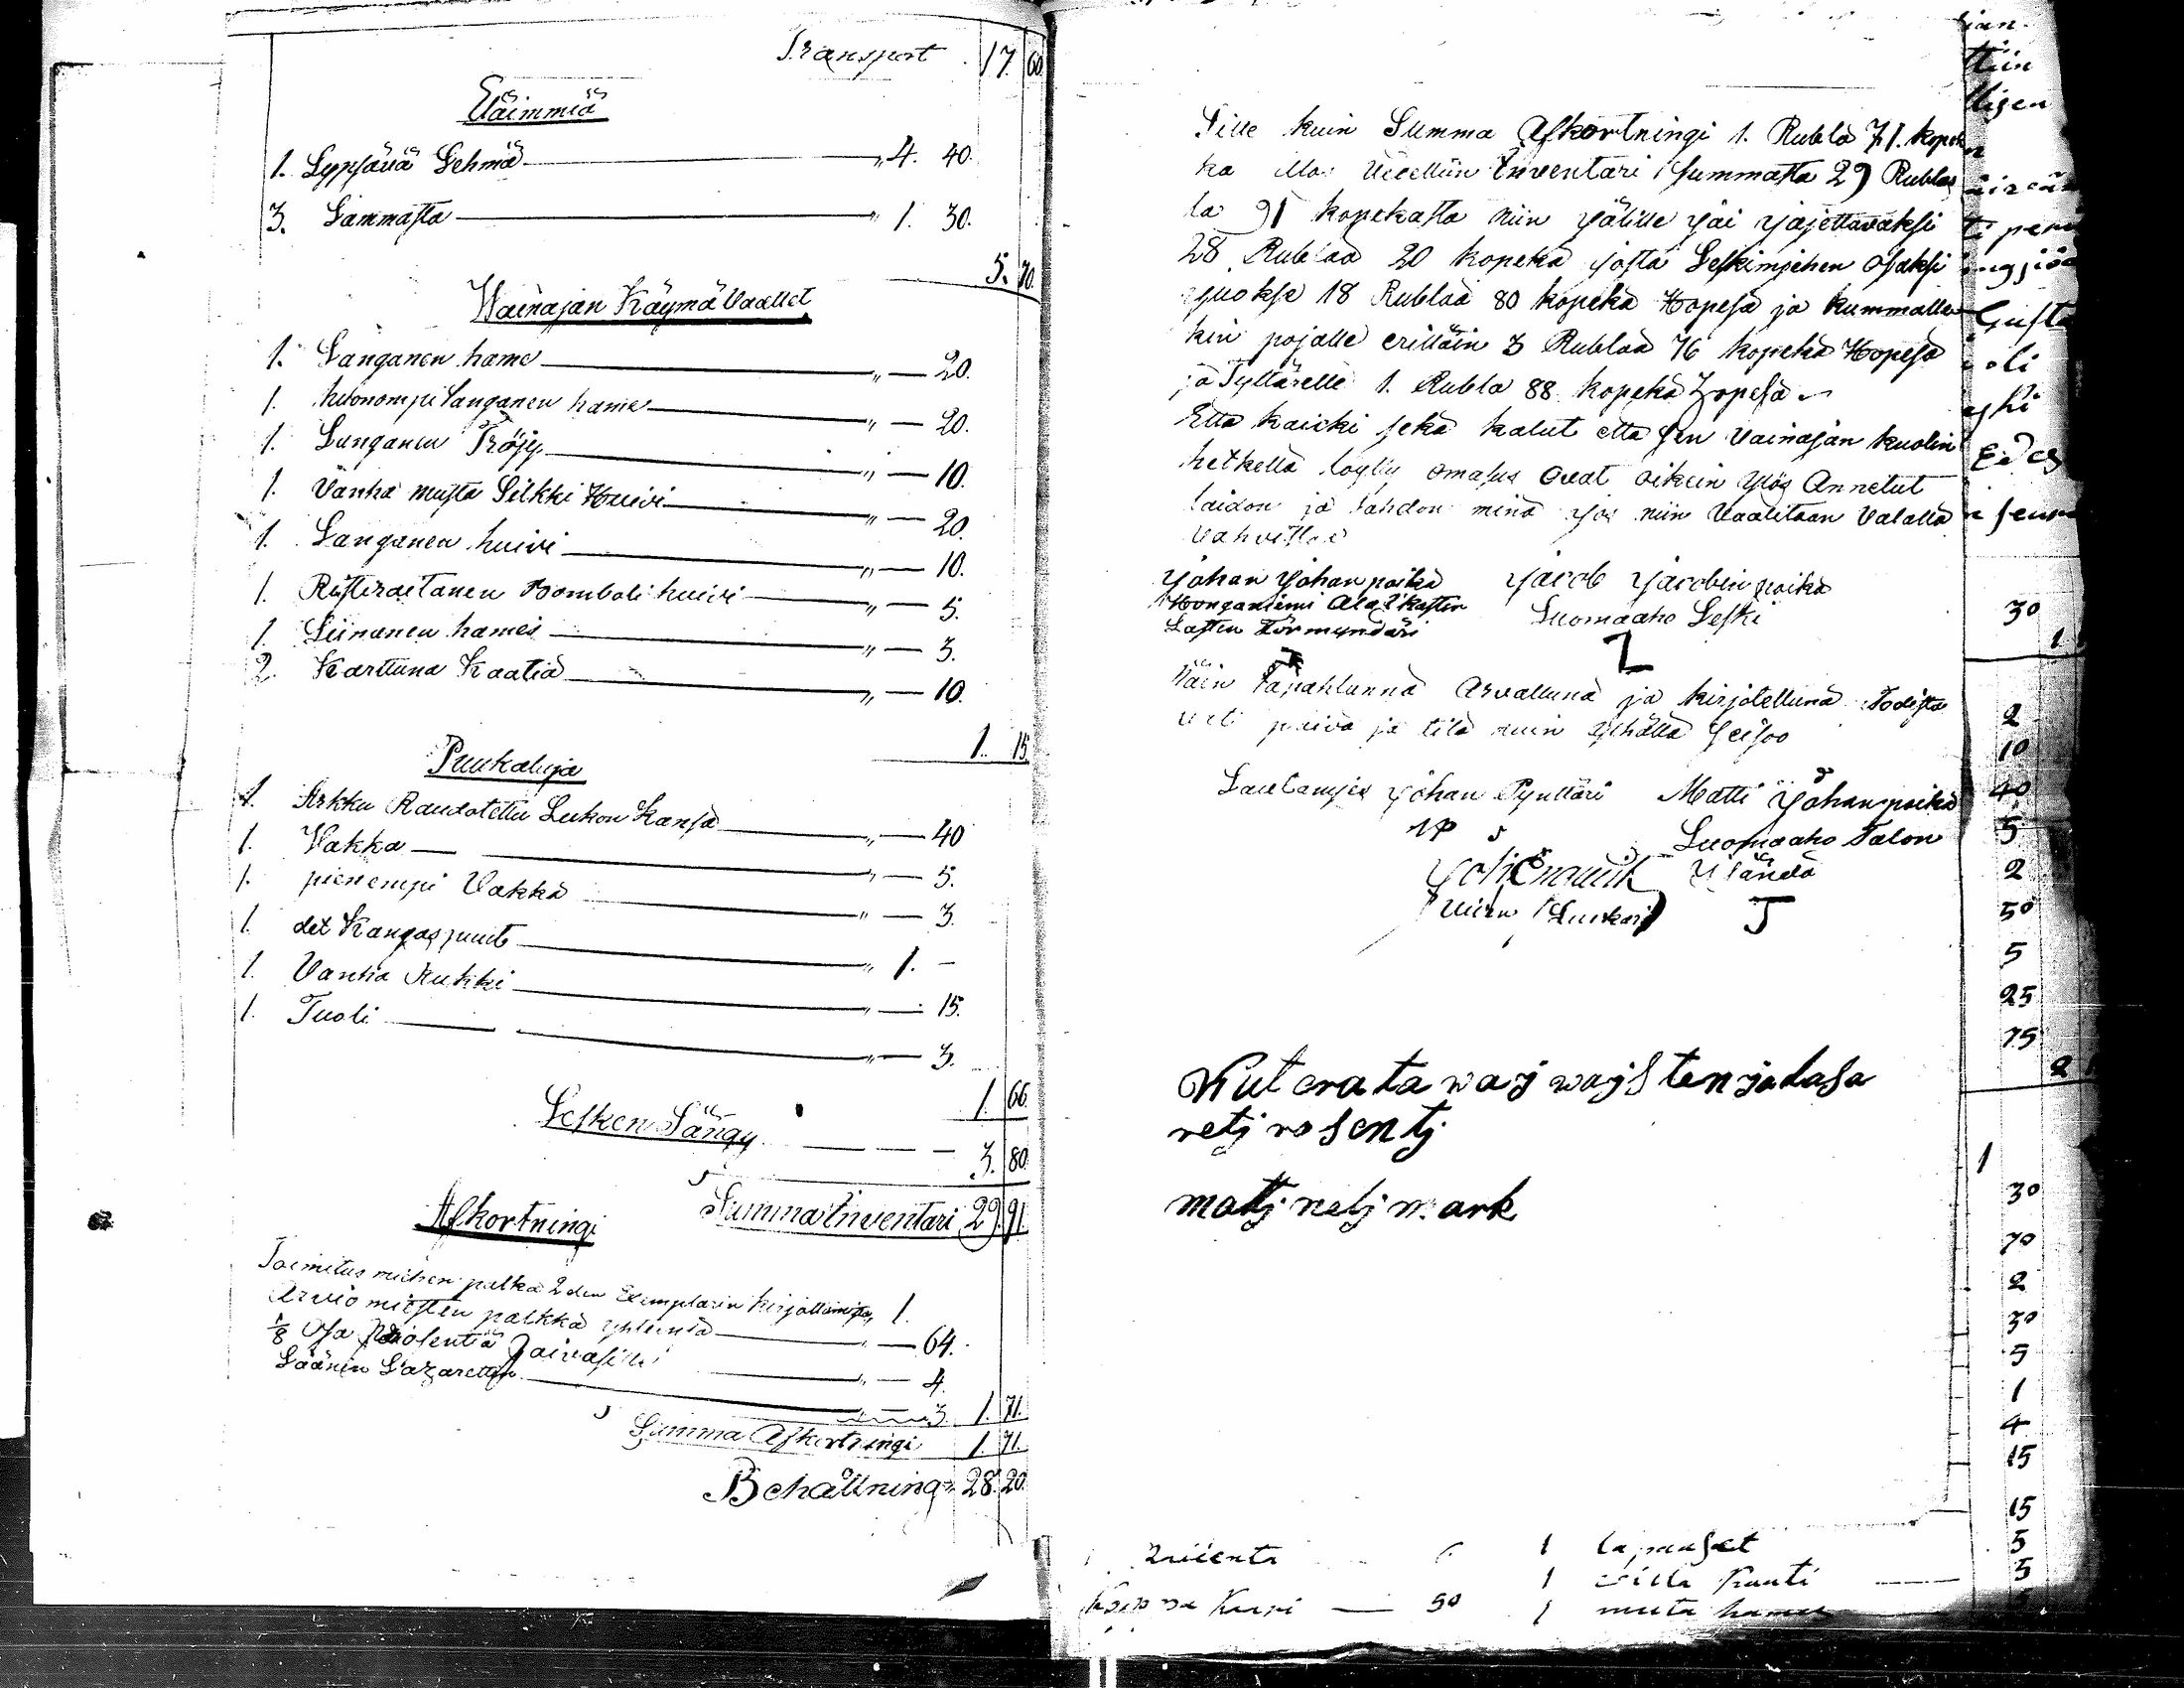 Transport 17. 60.
Eläimmiä
1. Lypsävä Lehmä " 4. 40.
3. Lammasta " 1. 30.
5. 70.
Wainajan Käymä Vaattet
1. Langanen hame " — 20.
1. huonompi Langanen hame " — 20.
1. Langanen Tröijy " — 10.
1. Vanha musta Silkki Huivi " — 20.
1. Langanen huivi " — 10.
1. Ristiraitanen Bomboli huivi " — 5.
1. Liinanen hames " — 3.
2. Karttuna Kaatia " — 10.
1. 15.
Puukaluja
1. Arkku Raudotettu Lukon Kansa " — 40
1. Vakka " — 5.
1. pienempi Vakka " — 3.
1. det Kangaspuut " 1. –
1. Vanha Rukki " — 15.
1. Tuoli " — 3.
1. 66.
Lesken Sängy 3. 80
Summa Inventari 29. 91.
Afkortningi
Toimitus miehen palka 2 den Exemplarin kirjottamista " 1.
Arvio miesten palkka yhteensä " — 64.
1/8 Osa prosentiä Vaivasille " — 4.
Läänin Lazarettin 3. 1. 71.
Summa Afkortningi 1. 71.
Behållning 28. 20.
Sille kuin Summa Afkortningi 1. Rubla 71. kopek
ka Ulos Vedettiin Inventari Summasta 29 Rublas
ta 91 kopekasta niin jälille jäi jajettavaksi
28. Rublaa 20 kopeka josta Leskimiehen osaksi
juokse 18 Rublaa 80 kopeka Hopesa ja kummalle
kin pojalle erittäin 3 Rublaa 76 kopeka Hopesa
ja Tyttärelle 1. Rubla 88 kopeka Hopesa
Etta kaicki seka kalut etta sen Vainajan kuolin
hetkellä löytty omasus ovat oikein ylös Annetut
taidon ja tahdon minä jos niin Vaalitaan Valalla
vahvistaa
Johan Johanpoika Jacob Jacobin poika
Honganiemi Alaikasten Luomaaho Leski
Lasten Förmyndäri
Näin Tapahtunna Arvattuna ja kirjotettuna Todista
vat päivä ja tila kuin ylhällä seisoo
Lautamies Johan Pynttäri Matti Johanpoika
JP Luomaaho Talon
Isändä
J
Kut erata waj wajstenjatasa
netj rosentj
matj nelj mark
ian
tiin
lligen
n
ti
Gusta
oli
yhi
Edes
n seura
30
1
2
10
40
5
2
50
5
25
75
2
1
30
70
2
30
5
1
4
15
15
5
5
Kuppi — 50
1 lapaset
1 villa Kanti
1 musta hames